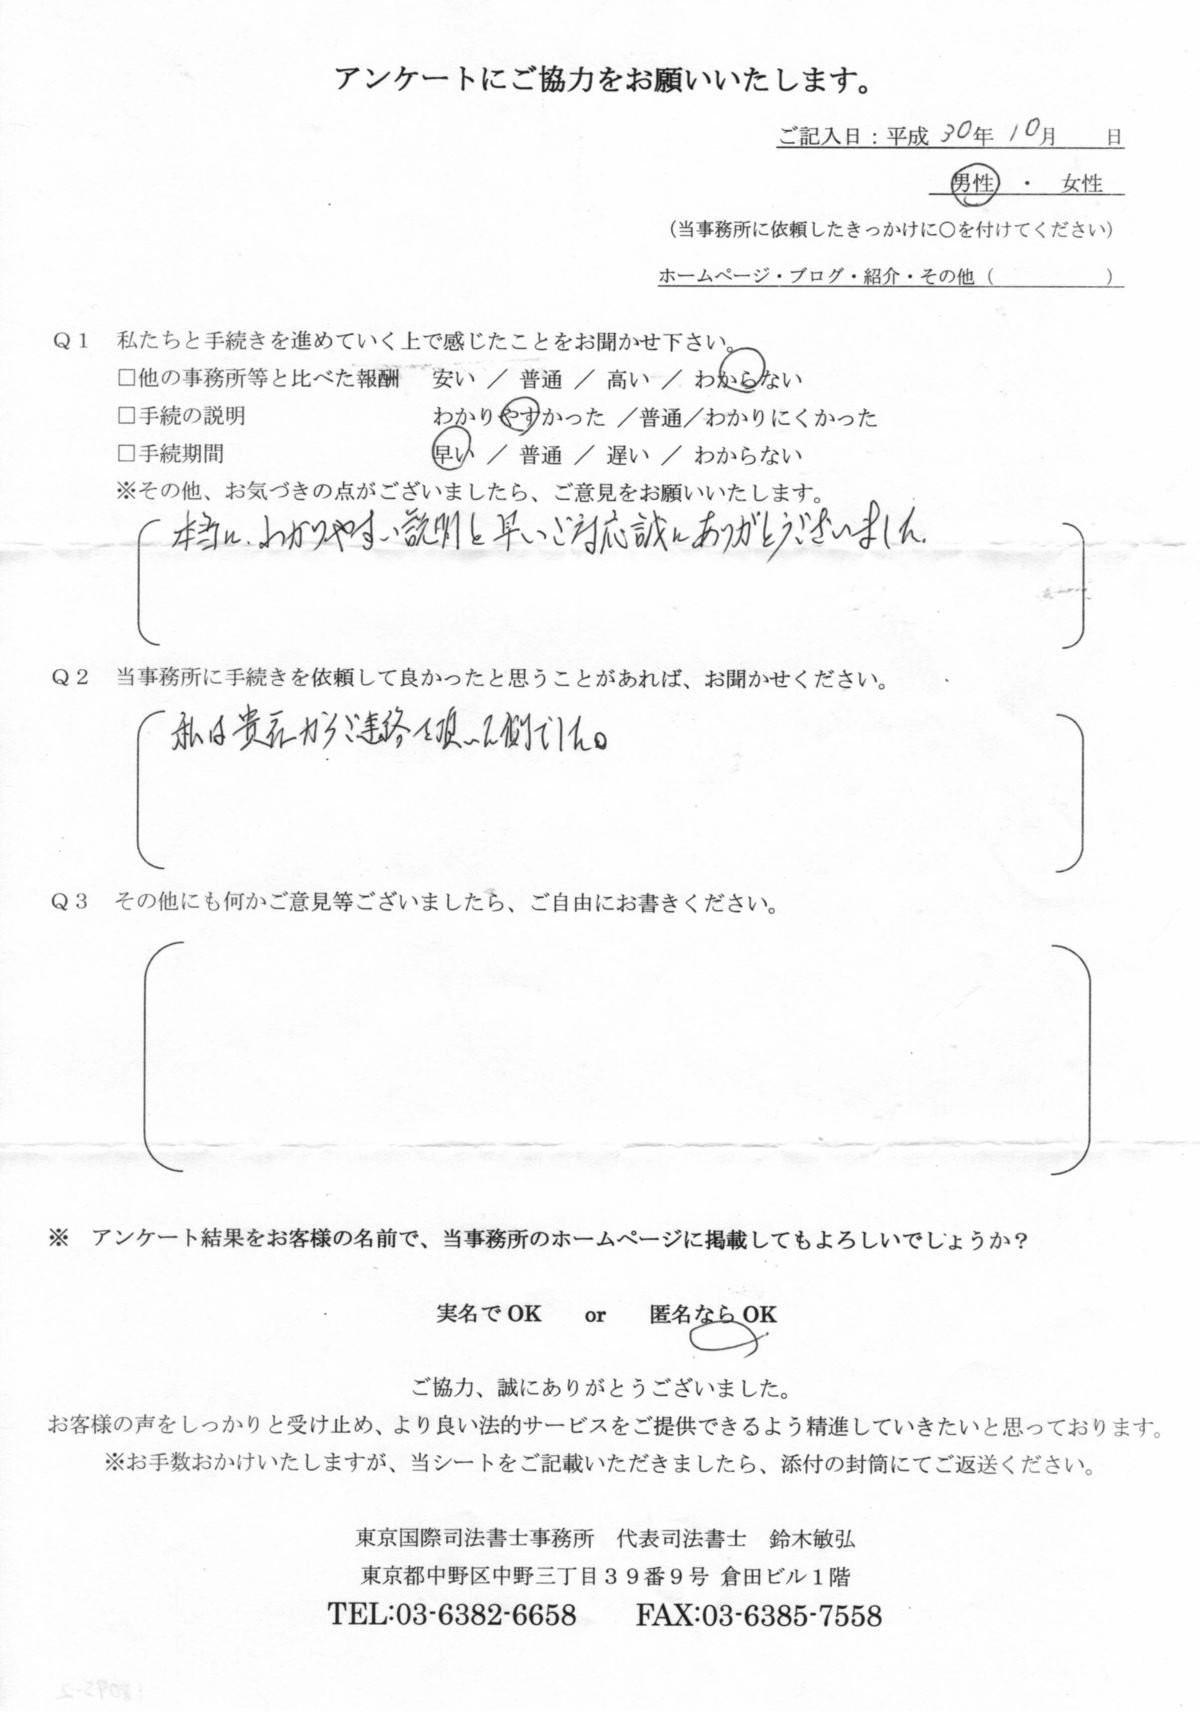 アンケートにご協力をお願いいたします。
ご記入日：平成 30年 10月　　日
男性　・　女性
（当事務所に依頼したきっかけに〇を付けてください）
ホームページ・ブログ・紹介・その他（　　　　　　）
Ｑ１　私たちと手続きを進めていく上で感じたことをお聞かせ下さい。
□他の事務所等と比べた報酬　安い ／ 普通 ／ 高い ／ わからない
□手続の説明　わかりやすかった ／普通／わかりにくかった
□手続期間　早い ／ 普通 ／ 遅い ／ わからない
※その他、お気づきの点がございましたら、ご意見をお願いいたします。
本当に、わかりやすい説明と早いご対応誠にありがとうございました。
Ｑ２　当事務所に手続きを依頼して良かったと思うことがあれば、お聞かせください。
私は貴社からご連絡を頂いた側でした。
Ｑ３　その他にも何かご意見等ございましたら、ご自由にお書きください。
※　アンケート結果をお客様の名前で、当事務所のホームページに掲載してもよろしいでしょうか？
実名で OK　　or　　匿名なら OK
ご協力、誠にありがとうございました。
お客様の声をしっかりと受け止め、より良い法的サービスをご提供できるよう精進していきたいと思っております。
※お手数おかけいたしますが、当シートをご記載いただきましたら、添付の封筒にてご返送ください。
東京国際司法書士事務所　代表司法書士　鈴木敏弘
東京都中野区中野三丁目３９番９号 倉田ビル１階
TEL:03-6382-6658　　FAX:03-6385-7558